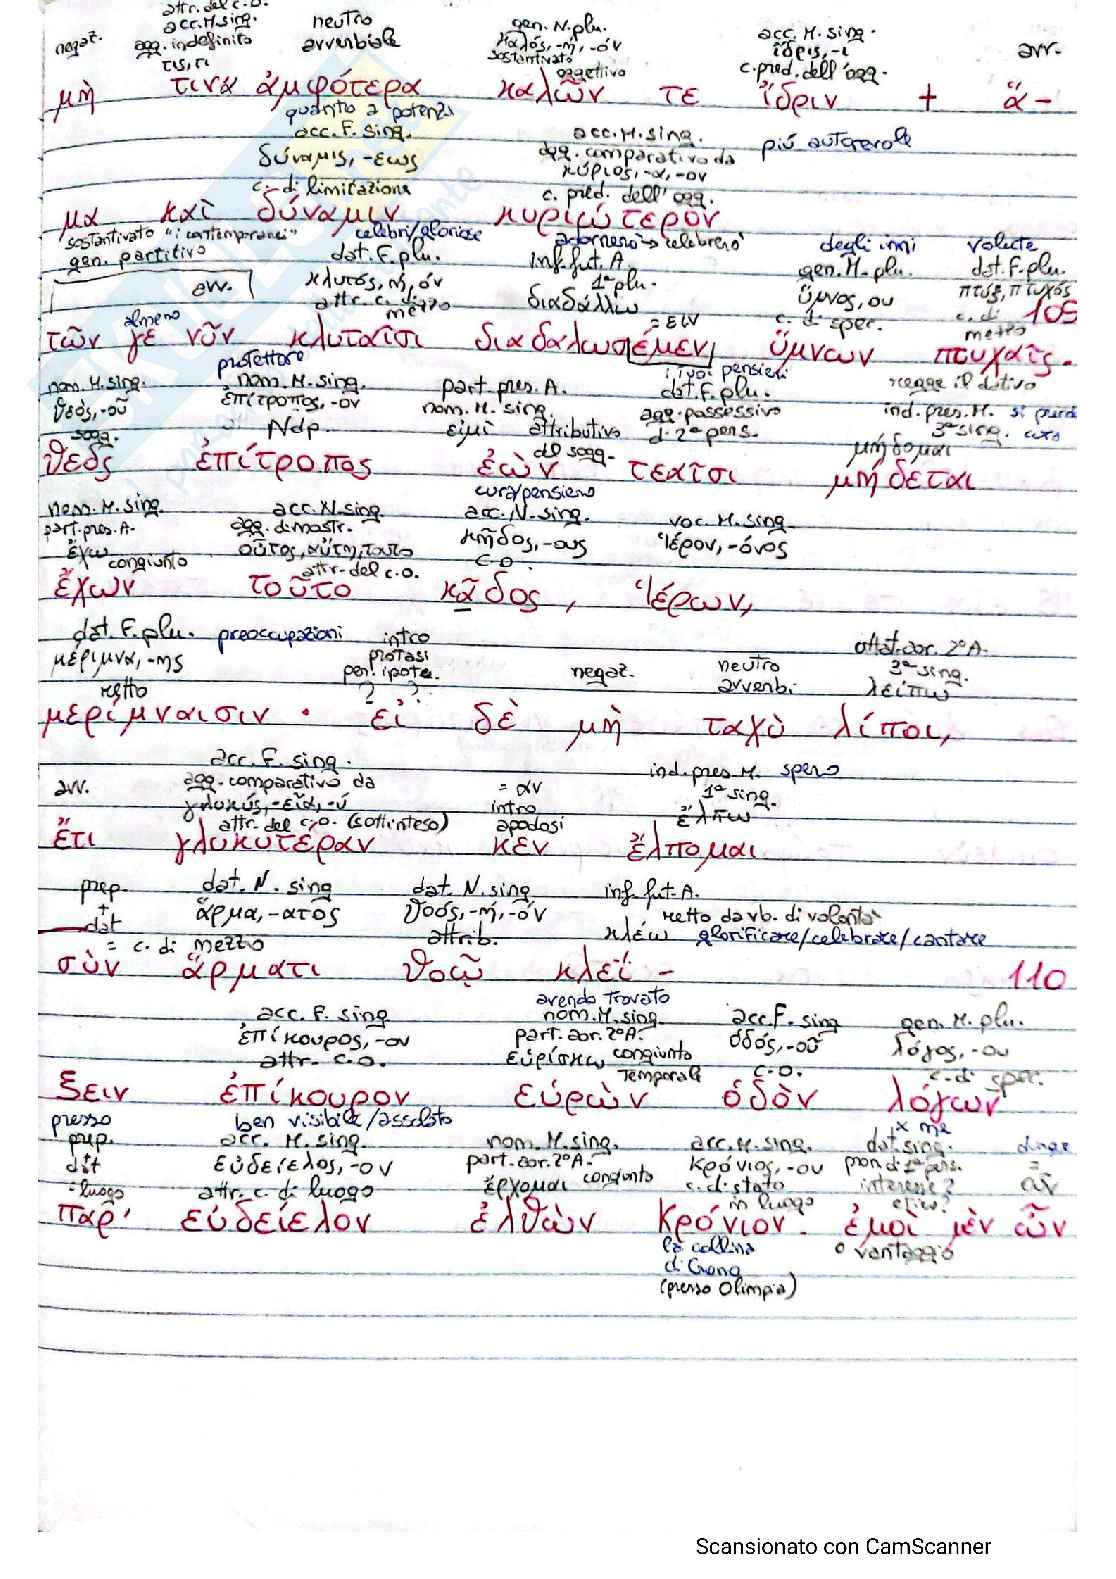 attr. del c.o.
negat. acc. M. sing. neutro gen. N. plu. acc. M. sing. avv.
agg. indefinito avverbiale καλός, -ή, -όν ἴδρις, -ι
τις, τι sostantivato oggettivo c. pred. dell'ogg.
μὴ τινα ἀμφότερα καλῶν τε ἴδριν + ἅ-
quanto a potenza
acc. F. sing. acc. M. sing. più autorevole
δύναμις, -εως agg. comparativo da
κύριος, -α, -ον
c. di limitazione c. pred. dell'ogg.
μα καὶ δύναμιν κυριώτερον
sostantivato "i contemporanei" celebri/gloriose adornerò → celebrerò degli inni volute
gen. partitivo dat. F. plu. inf. fut. A. gen. M. plu. dat. F. plu.
avv. κλυτός, ή, όν 1ª plu. ὕμνος, ου πτυξ, πτυχός
attr. c. di mezzo διαδάλλω c. di spec. c. di mezzo 105
almeno = ειν
τῶν γε νῦν κλυταῖσι διαδαλωσέμεν ὕμνων πτυχαῖς.
protettore i tuoi pensieri
nom. M. sing. nom. M. sing. part. pres. A. dat. F. plu. regge il dativo
θεός, -οῦ ἐπίτροπος, -ον nom. M. sing. agg. possessivo ind. pres. M. si prende
sogg. Ndp εἰμί attributivo di 2ª pers. 3ª sing. cura
del sogg. μήδομαι
θεὸς ἐπίτροπος ἐὼν τεαῖσι μήδεται
cura/pensiero
nom. M. sing. acc. N. sing. acc. N. sing. voc. M. sing.
part. pres. A. agg. dimostr. κῆδος, -ους Ἱέρον, -όνος
ἔχω congiunto οὗτος, αὕτη, τοῦτο c.o.
attr. del c.o.
ἔχων τοῦτο κᾶδος, Ἱέρων,
dat. F. plu. preoccupazioni intro ottat. aor. 2º A.
μέριμνα, -ης protasi negat. neutro 3ª sing.
retto per. ipote. avverbi. λείπω
? ?
μερίμναισιν · εἰ δὲ μὴ ταχὺ λίποι,
acc. F. sing. ind. pres. M. spero
avv. agg. comparativo da = αν 1ª sing.
γλυκύς, -εῖα, -ύ intro ἔλπω
attr. del c.o. (sottinteso) apodosi
ἔτι γλυκυτέραν κεν ἔλπομαι
prep. dat. N. sing dat. N. sing inf. fut. A.
+ dat ἅρμα, -ατος θοός, -ή, -όν retto da vb. di volontà
= c. di mezzo attrib. κλέω glorificare/celebrare/cantare
σὺν ἅρματι θοῷ κλεΐ- 110
avendo trovato
acc. F. sing nom. M. sing. acc. F. sing gen. M. plu.
ἐπίκουρος, -ον part. aor. 2º A. ὁδός, -οῦ λόγος, -ου
attr. c.o. εὑρίσκω congiunto c.o. c. di spec.
temporale
ξειν ἐπίκουρον εὑρὼν ὁδὸν λόγων
presso ben visibile/assolato x me
prep. acc. M. sing. nom. M. sing. acc. M. sing. dat. sing.
dat εὐδείελος, -ον part. aor. 2º A. Κρόνιος, -ου pron di 1ª pers. =
= luogo attr. c. di luogo ἔρχομαι congiunto c. di stato interesse? οὖν
in luogo etico?
παρ' εὐδείελον ἐλθὼν Κρόνιον. ἐμοὶ μὲν ὦν
la collina o vantaggio
di Crono
(presso Olimpia)
Scansionato con CamScanner